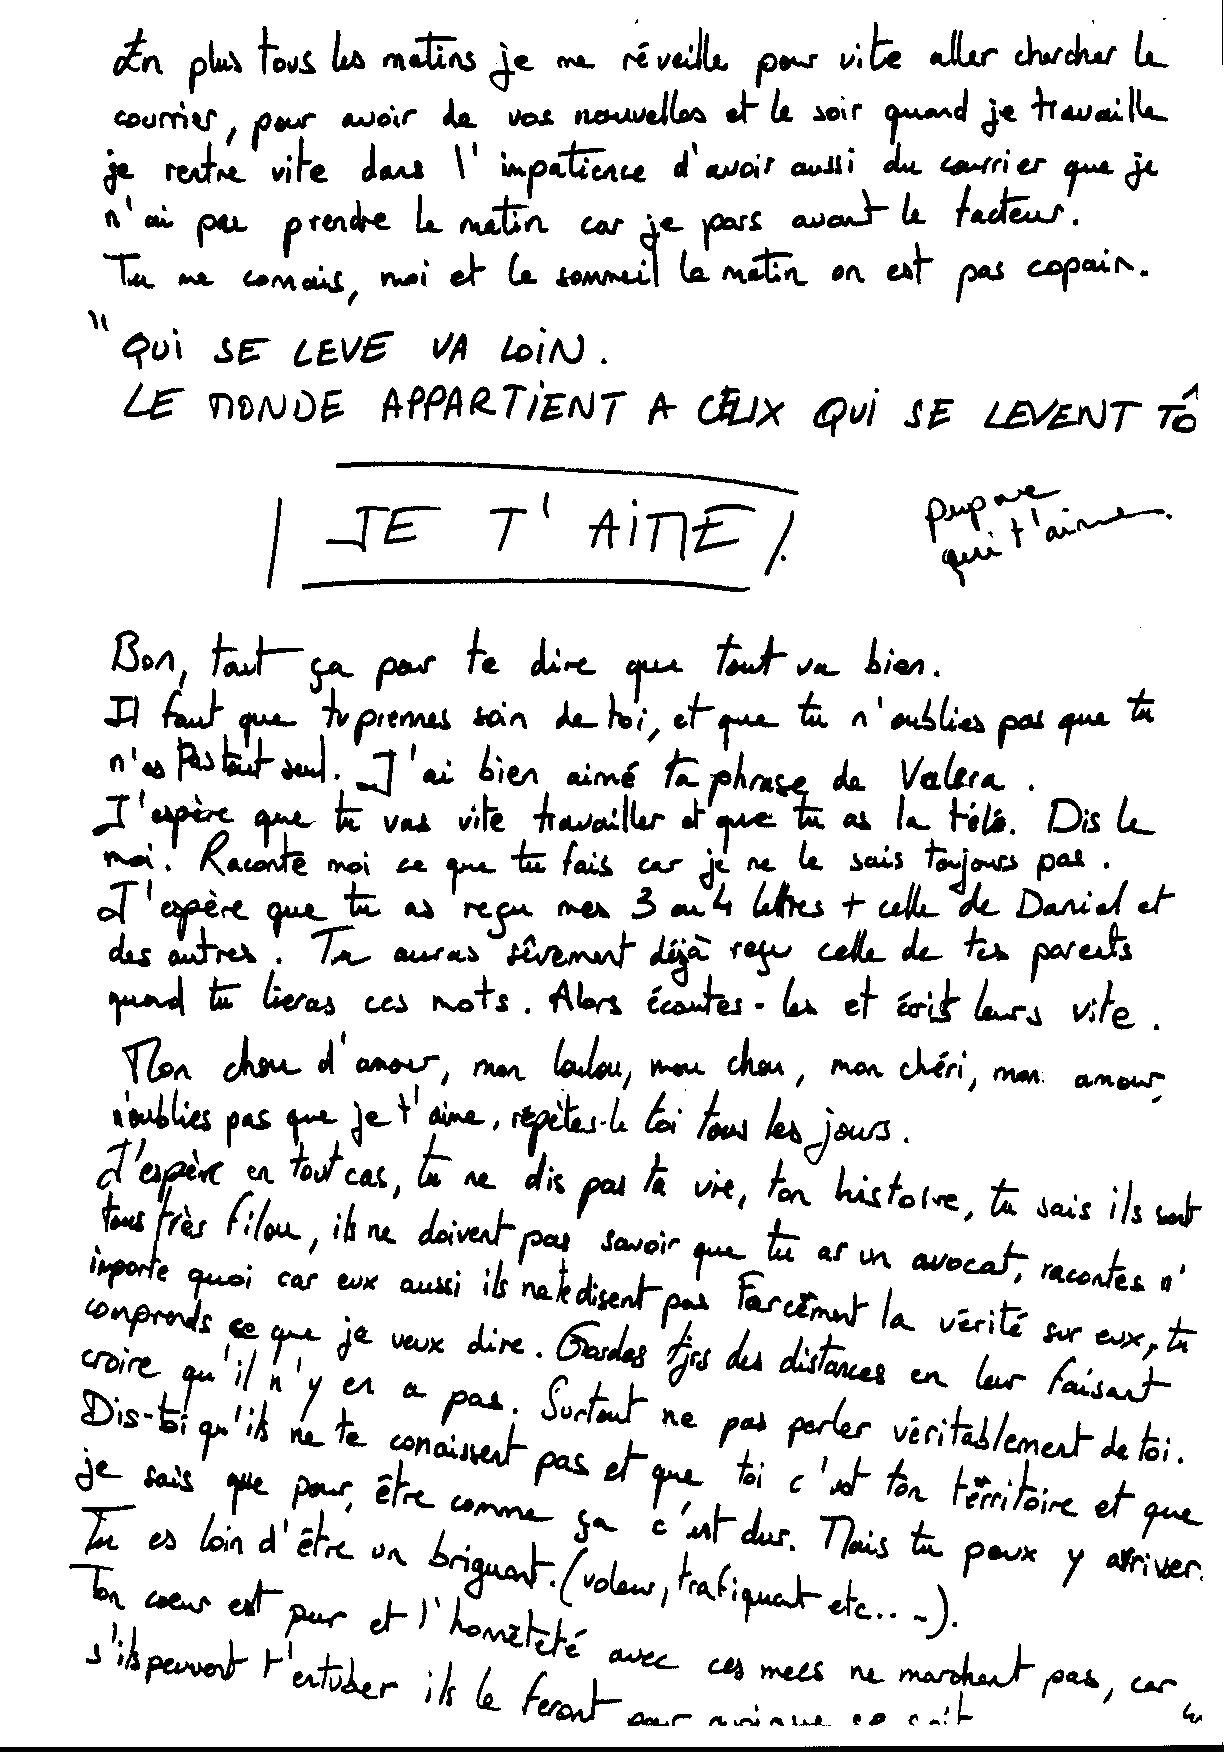 En plus tous les matins je me réveille pour vite aller chercher le
courrier, pour avoir de vos nouvelles et le soir quand je travaille
je rentre vite dans l'impatience d'avoir aussi du courrier que je
n'ai pas prendre le matin car je pars avant le facteur.
Tu me connais, moi et le sommeil le matin on est pas copain.
" QUI SE LEVE VA LOIN.
LE MONDE APPARTIENT A CEUX QUI SE LEVENT TÔ
JE T'AIME
qui t'aime
Bon, tout ça pour te dire que tout va bien.
Il faut que tu prennes soin de toi, et que tu n'oublies pas que tu
n'es pas tout seul. J'ai bien aimé ta phrase de Valera.
J'espère que tu vas vite travailler et que tu as la télé. Dis le
moi. Raconte moi ce que tu fais car je ne le sais toujours pas.
J'espère que tu as reçu mes 3 ou 4 lettres + celle de Daniel et
des autres. Tu auras sûrement déjà reçu celle de tes parents
quand tu lieras ces mots. Alors écoutes-les et écrit leurs vite.
Mon chou d'amour, mon loulou, mou chou, mon chéri, mon amour,
n'oublies pas que je t'aime, répètes-le toi tous les jours.
J'espère en tout cas, tu ne dis pas ta vie, ton histoire, tu sais ils sont
tous très filou, ils ne doivent pas savoir que tu as un avocat, racontes n'
importe quoi car eux aussi ils ne te disent pas forcément la vérité sur eux, tu
comprends ce que je veux dire. Gardes tjrs des distances en leur faisant
croire qu'il n'y en a pas. Surtout ne pas parler véritablement de toi.
Dis-toi qu'ils ne te conaissent pas et que toi c'est ton térritoire et que
je sais que pour être comme ça c'est dur. Mais tu peux y arriver.
Tu es loin d'être un briguant. (voleur, trafiquant etc...).
Ton coeur est pur et l'honnêteté avec ces mecs ne marchent pas, car
s'ils peuvent t'entuber ils le feront